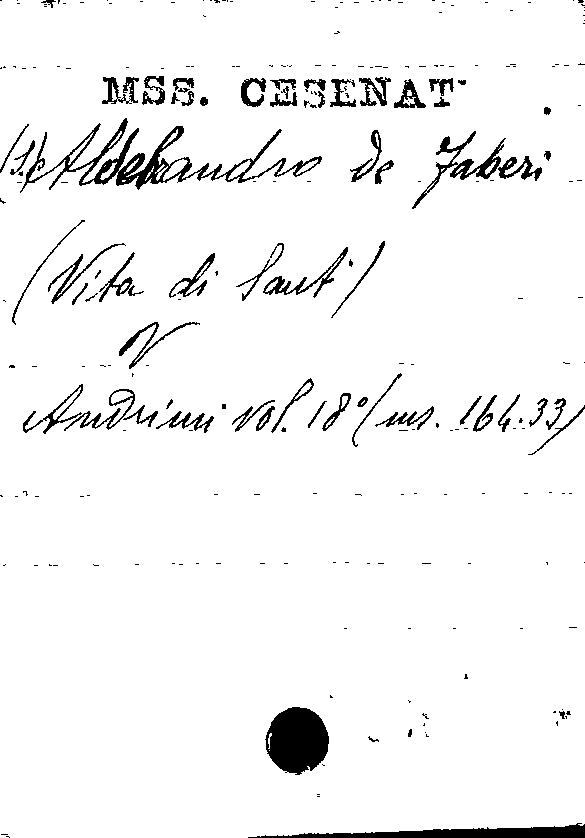 MSS. CESENAT
(S.) Aldebrandro de Faberi
(Vita di Santi)
V
Andrini vol. 18° (ms. 164.33)